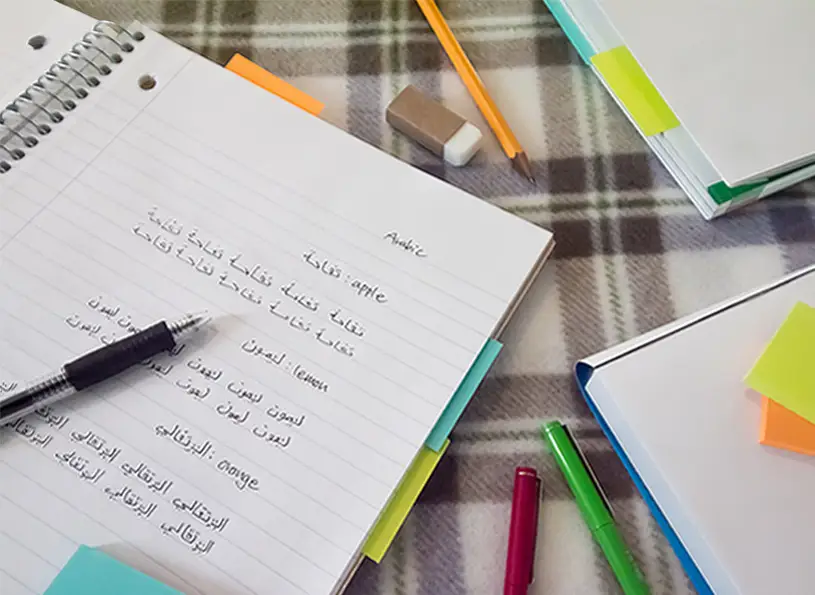 Arabic
apple : تفاحة
تفاحة تفاحة تفاحة تفاحة تفاحة تفاحة
تفاحة تفاحة تفاحة تفاحة تفاحة تفاحة
lemon : ليمون
ليمون ليمون ليمون ليمون ليمون
ليمون ليمون ليمون ليمون ليمون
orange : البرتقالي
البرتقالي البرتقالي البرتقالي البرتقالي
البرتقالي البرتقالي البرتقالي البرتقالي